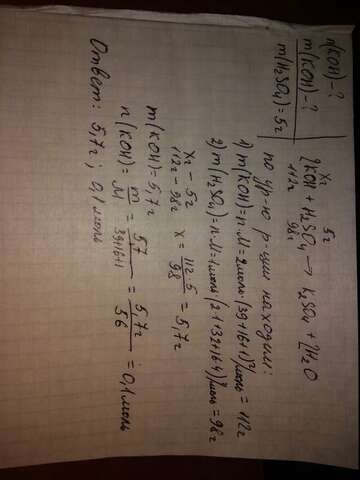 n(KOH)-?
m(KOH)-?
m(H₂SO₄)=5г
xг 5г
2KOH + H₂SO₄ → K₂SO₄ + 2H₂O
112г 98г
по ур-ю р-ции находим:
1) m(KOH)=n·M=2моль·(39+16+1)г/моль=112г
2) m(H₂SO₄)=n·M=1моль·(2·1+32+16·4)г/моль=98г
xг – 5г
112г – 98г x = 112·5/98 = 5,7г
m(KOH)=5,7г
n(KOH) = m/M = 5,7/39+16+1 = 5,7г/56 = 0,1моль
Ответ: 5,7г; 0,1моль